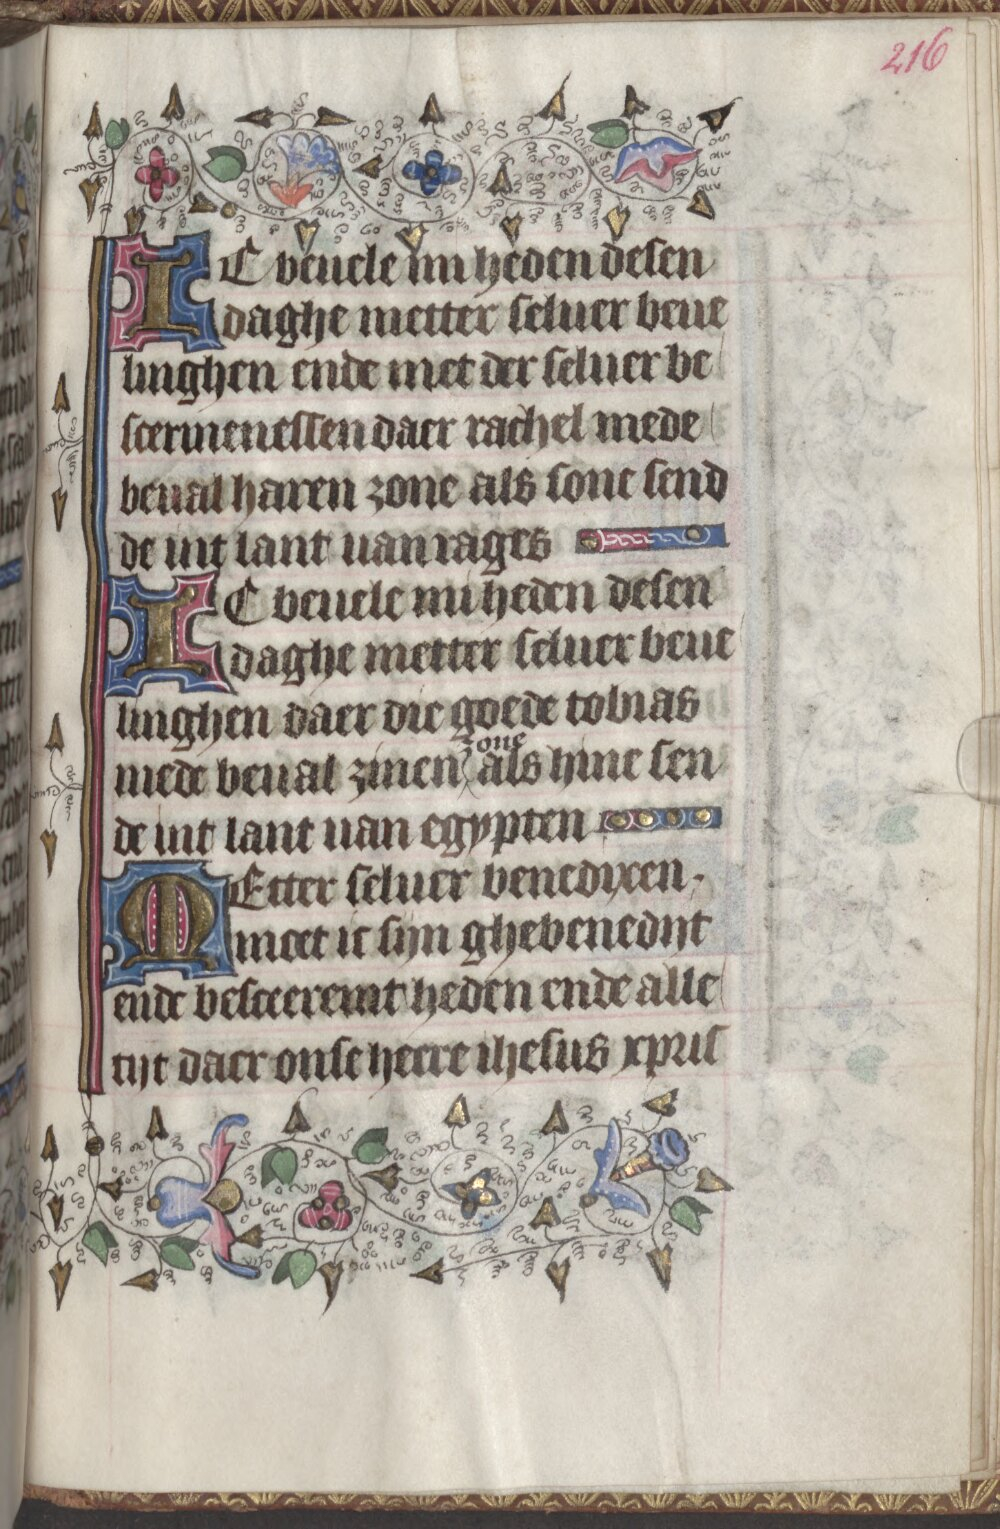 216
IC beuele mi heden desen
daghe metter seluer beue
linghen ende met der seluer be
scermenessen daer rachel mede
beual haren zone als sone send
de int lant uan rages
IC beuele mi heden desen
daghe metter seluer beue
linghen daer die goede tobias
zone
mede beual zinen als hine sen
de int lant uan egypten
MEtter seluer benedixen
moet ic sijn ghebenedijt
ende besceeremt heden ende alle
tijt daer onse heere ihesus xpris